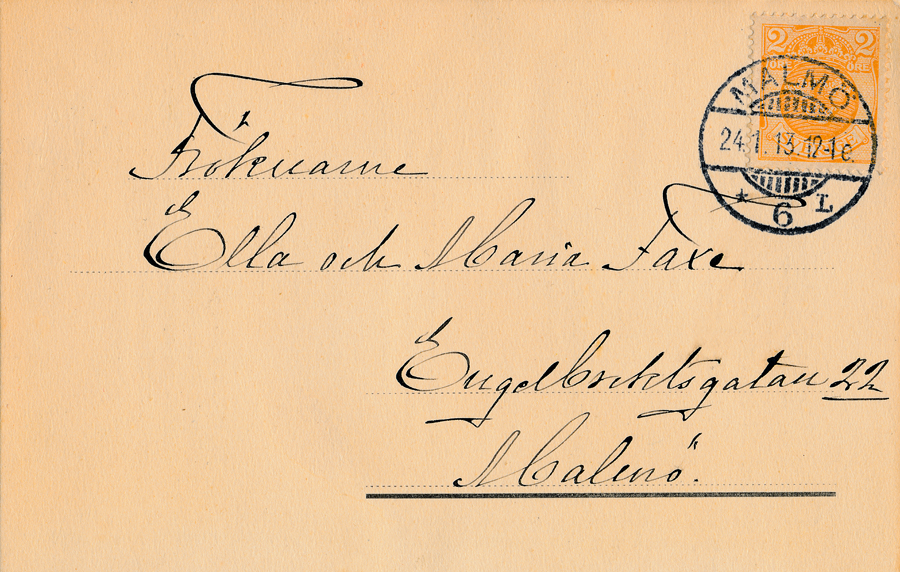 2 2
ÖRE ÖRE
MALMÖ
24.1.13.12-1 e.
* 6 L
Fröknarne
Ella och Maria Faxe
Engelbrektsgatan 22
Malmö.